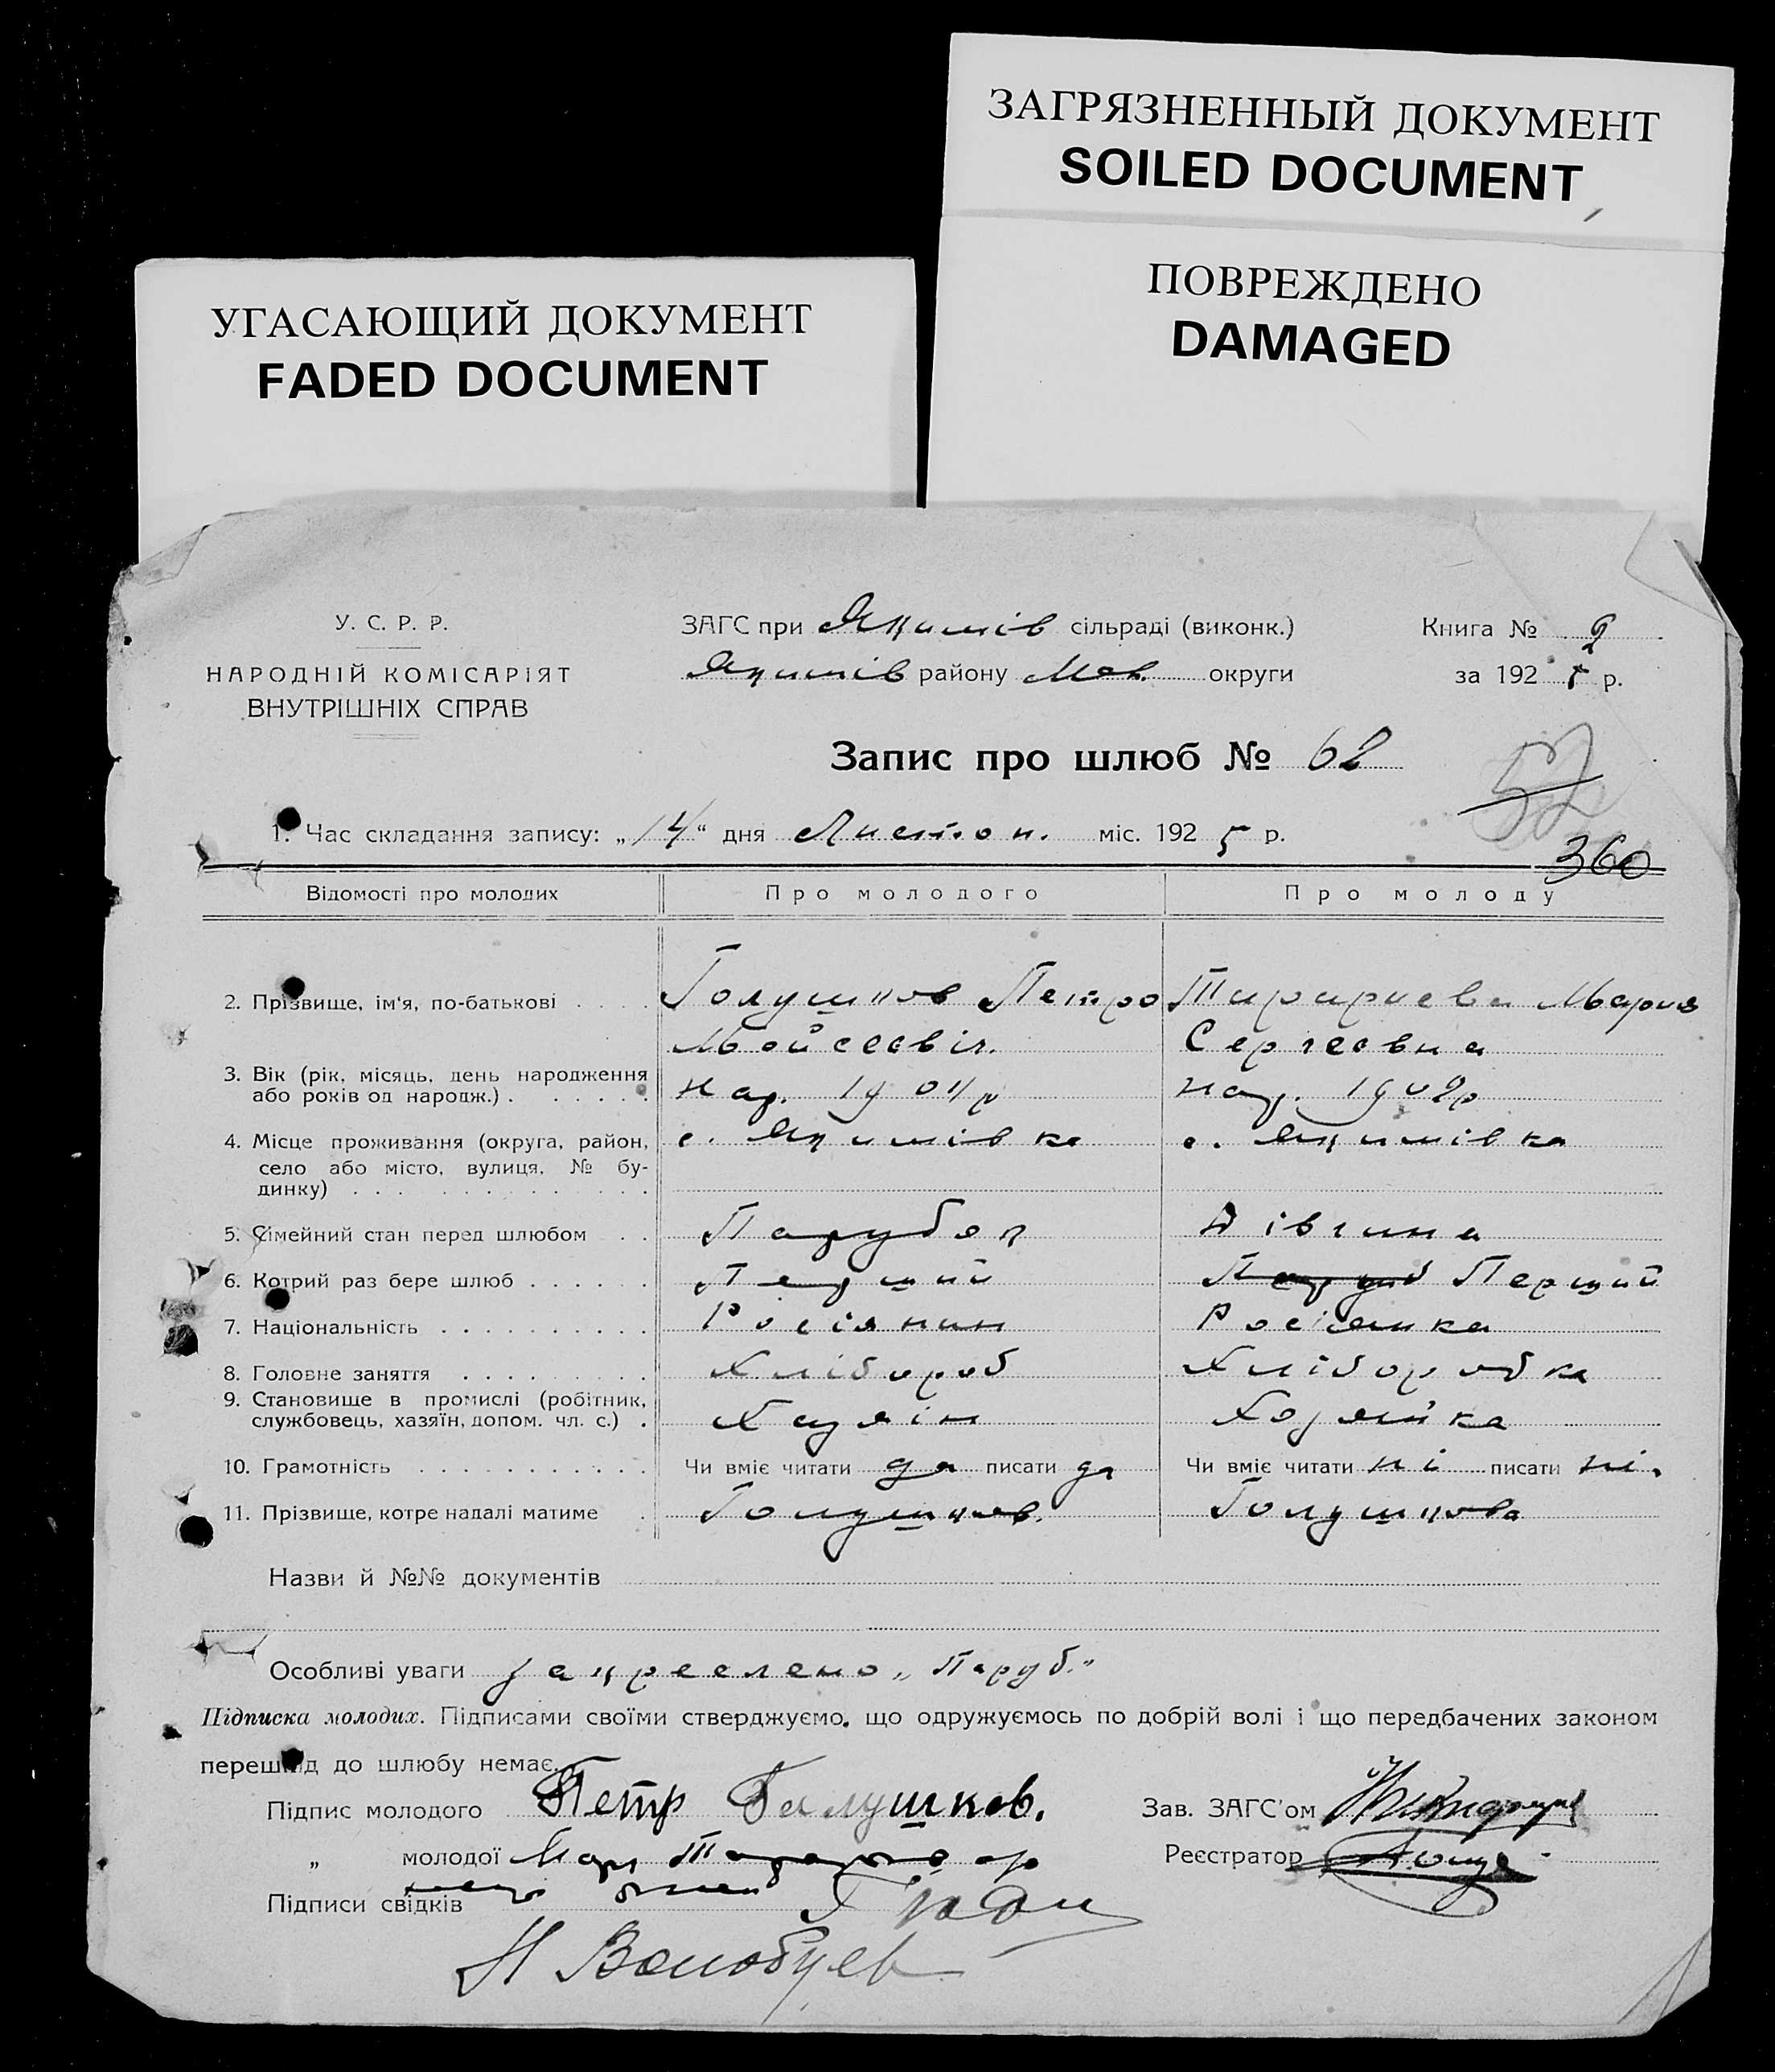 ЗАГРЯЗНЕННЫЙ ДОКУМЕНТ
SOILED DOCUMENT
ПОВРЕЖДЕНО
DAMAGED
УГАСАЮЩИЙ ДОКУМЕНТ
FADED DOCUMENT
У. С. Р. Р.
НАРОДНІЙ КОМІСАРІЯТ
ВНУТРІШНІХ СПРАВ
ЗАГС при Якимів сільраді (виконк.)
Якимів району Мел. округи
Книга № 2
за 192 5 р.
Запис про шлюб № 62
52
1. Час складання запису: „14“ дня Листоп. міс. 192 5 р.
360
Відомості про молодих Про молодого Про молоду
2. Прізвище, ім'я, по-батькові . . . . Голушков Петро Мария
Мойсеєвіч. Сергеєвна
3. Вік (рік, місяць, день народження
або років од народж.) . . . . . . Нар. 1904 р Нар. 1902 р
4. Місце проживання (округа, район, с. Якимівка с. Якимівка
село або місто, вулиця, № бу-
динку) . . . . . . . . . . . . .
5. Сімейний стан перед шлюбом . . Парубок Дівчина
6. Котрий раз бере шлюб . . . . . . Перший Перший
7. Національність . . . . . . . . . . Росіянин Росіянка
8. Головне заняття . . . . . . . . . Хлібороб Хліборобка
9. Становище в промислі (робітник,
службовець, хазяїн, допом. чл. с.) . Хазяін Хозяйка
10. Грамотність . . . . . . . . . . . Чи вміє читати да писати да Чи вміє читати ні писати ні.
11. Прізвище, котре надалі матиме . Голушков. Голушкова
Назви й №№ документів
Особливі уваги Закреслено „Паруб.“
Підписка молодих. Підписами своїми стверджуємо, що одружуємось по добрій волі і що передбачених законом
перешкод до шлюбу немає.
Підпис молодого Петр Галушков. Зав. ЗАГС'ом
„ молодої Реєстратор
Підписи свідків
Н